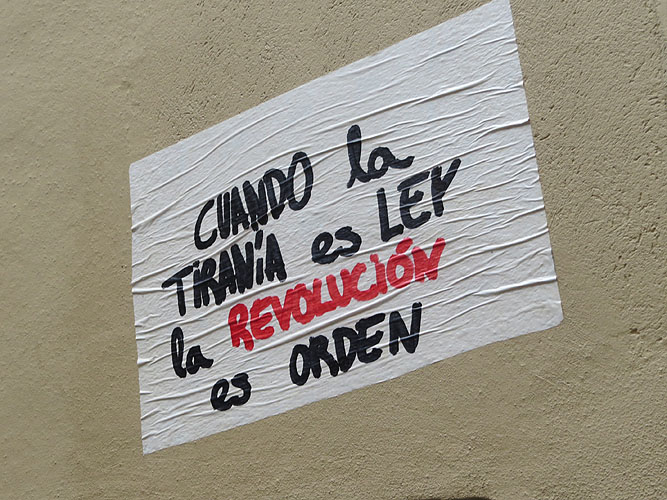 CUANDO la
TIRANÍA es LEY
la REVOLUCIÓN
es ORDEN